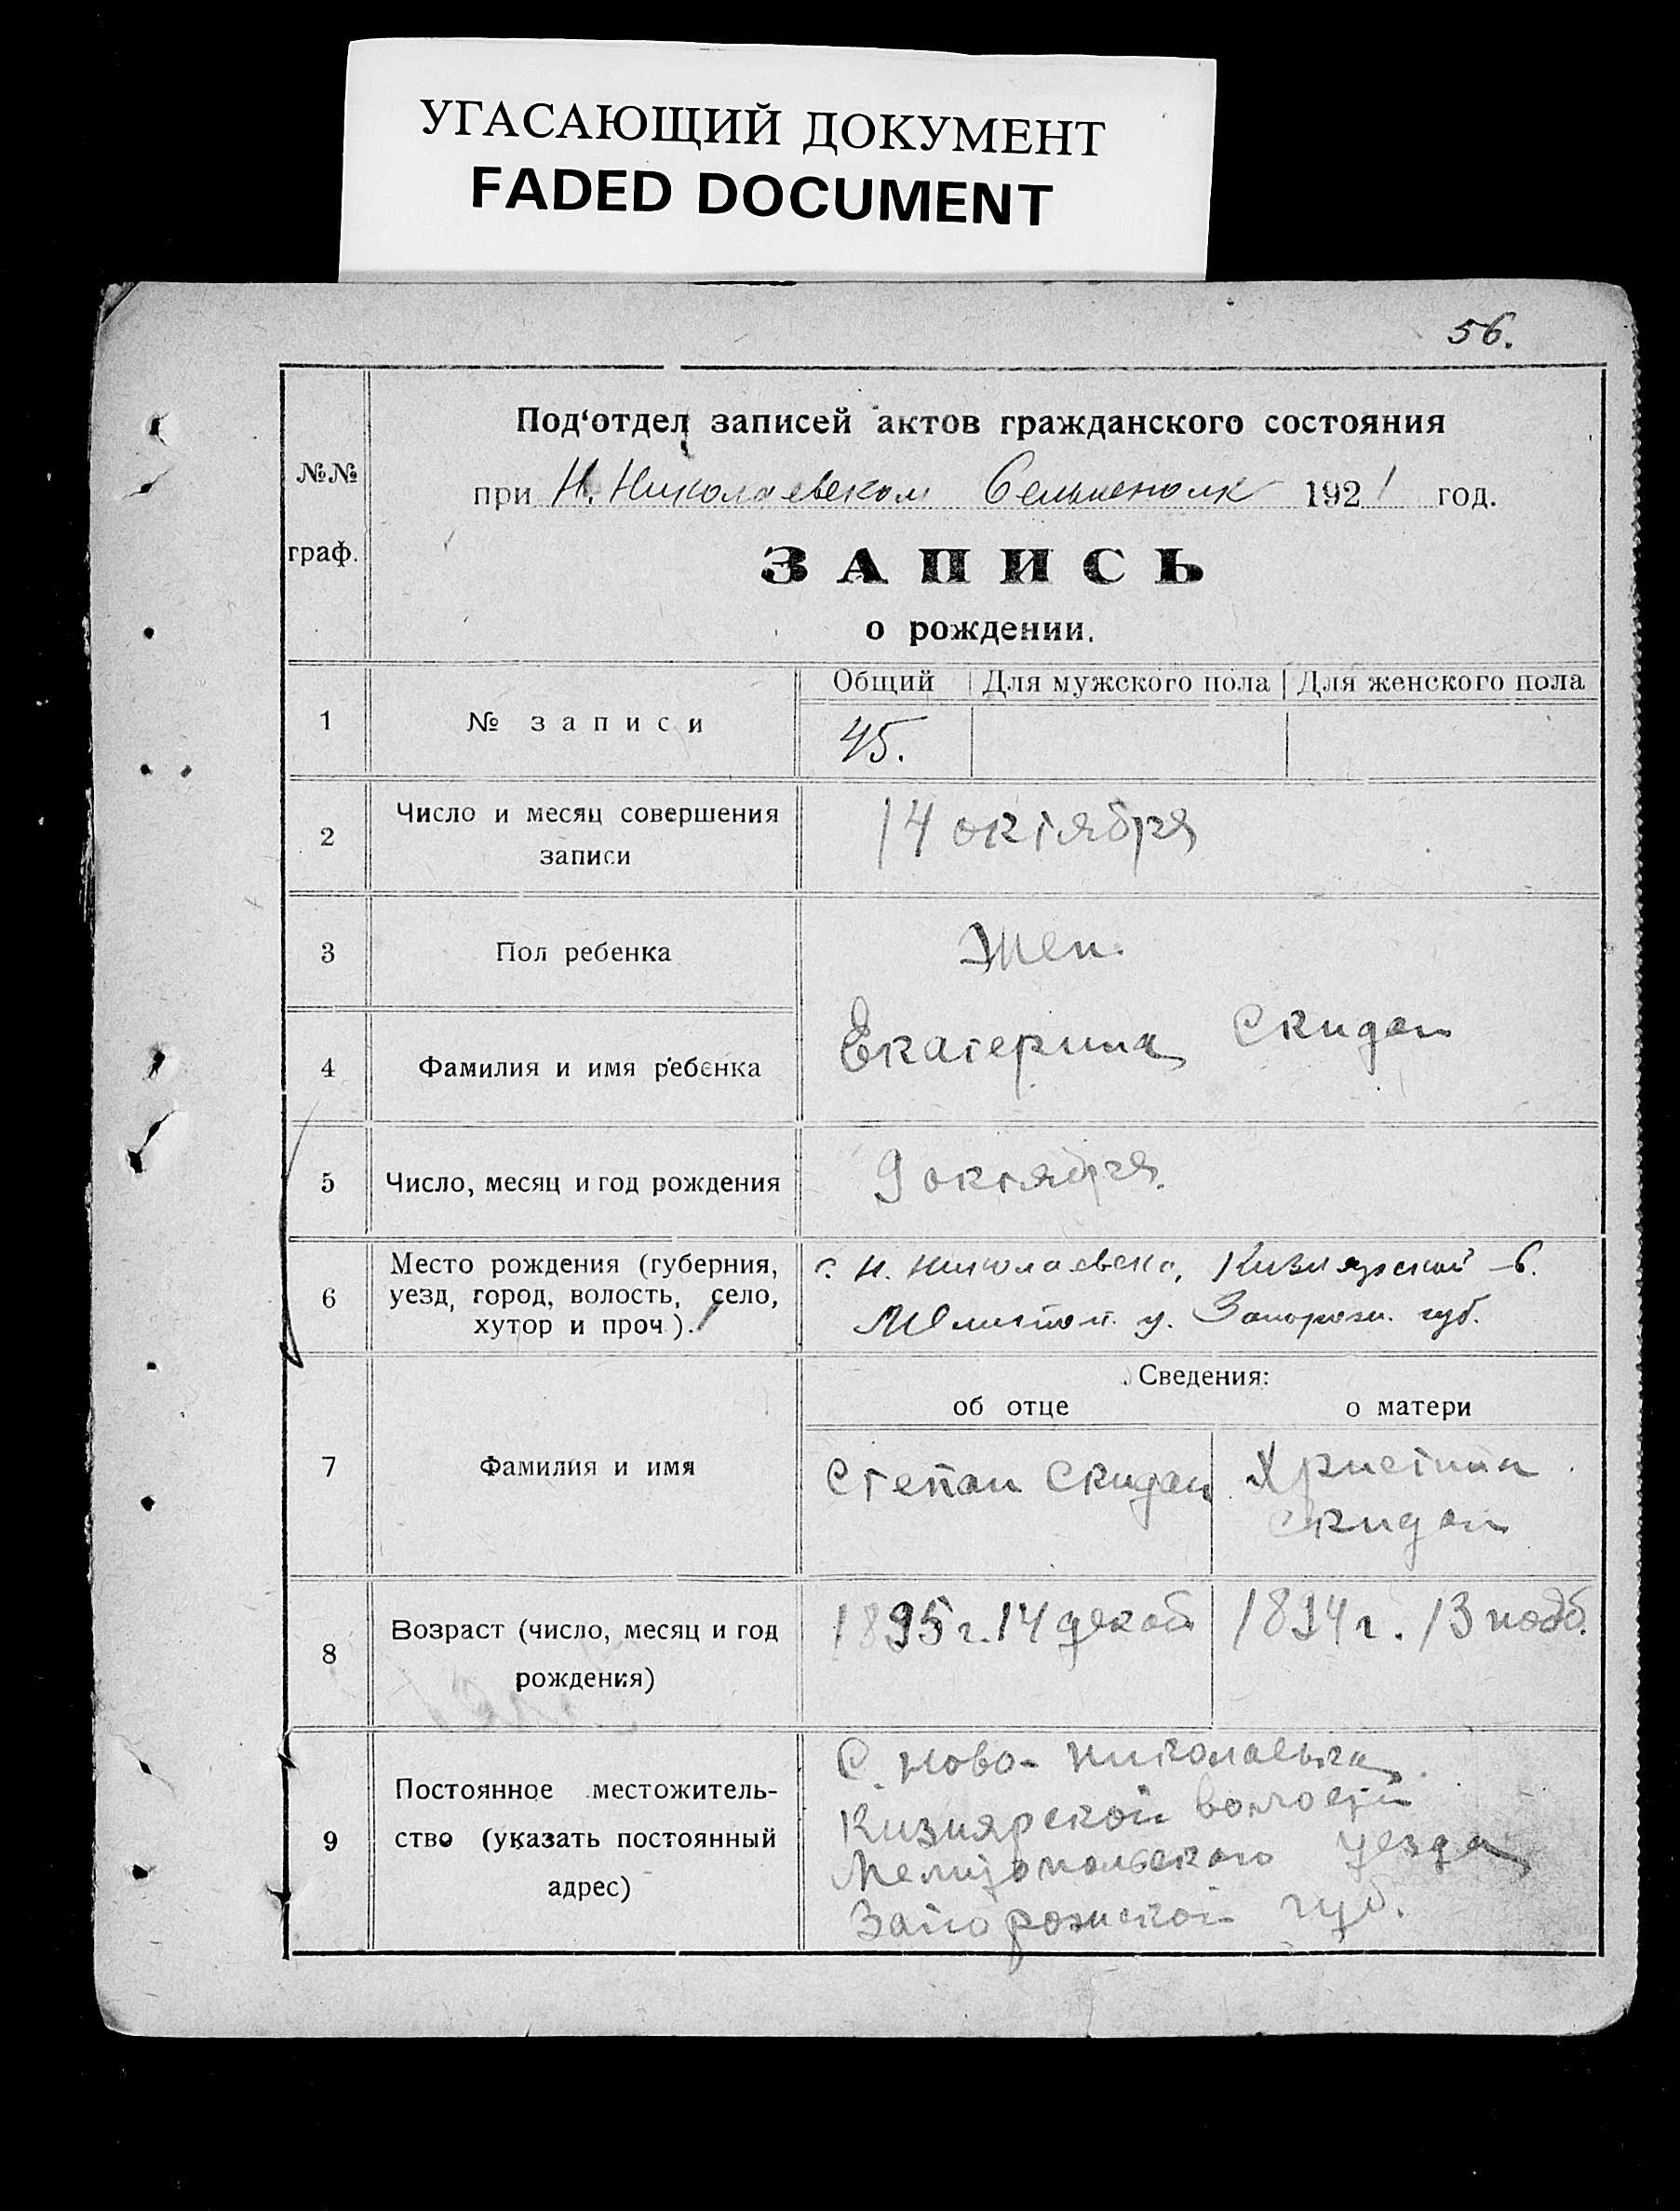 УГАСАЮЩИЙ ДОКУМЕНТ
FADED DOCUMENT
56.
№№
граф.
Под‘отдел записей актов гражданского состояния
при Н. Николаевском 1921 год.
ЗАПИСЬ
о рождении.
Общий Для мужского пола Для женского пола
1 № записи 45.
2 Число и месяц совершения
записи
14 октября
3 Пол ребенка Жен.
4 Фамилия и имя ребенка Екатерина Скидан
5 Число, месяц и год рождения 9 октября.
6 Место рождения (губерния,
уезд, город, волость, село,
хутор и проч.).
с. Н. Николаевка, Кизиярской в.
Мелитоп. у. Запорож. губ.
Сведения:
об отце о матери
7 Фамилия и имя
Степан Скидан
Христина
Скидан
8 Возраст (число, месяц и год
рождения)
1895 г. 14 декаб
1894 г. 13 нояб.
9 Постоянное местожитель-
ство (указать постоянный
адрес)
С. Ново-Николаевка
Кизиярской волости
Мелитопольского уезда
Запорожской губ.